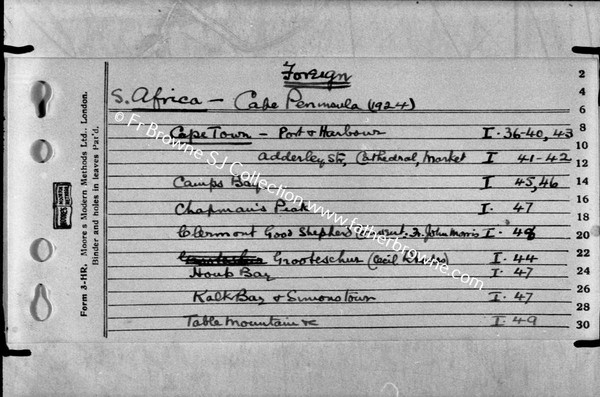 Foreign
S. Africa – Cape Peninsula (1924)
Cape Town – Port & Harbour I. 36-40, 43
Adderley Str, Cathedral, Market I 41-42
Camps Bay I 45, 46
Chapman's Peak I. 47
Clermont Good Shepherd Convent. Fr. John Morris I. 48
Grooteschur (Cecil Rhodes) I. 44
Houb Bay I. 47
Kalk Bay & Simonstown I. 47
Table Mountain &c I. 49
2
4
6
8
10
12
14
16
18
20
22
24
26
28
30
Form 3-HR. Moore's Modern Methods Ltd., London.
Binder and holes in leaves Pat'd.
© Fr Browne SJ Collection www.fatherbrowne.com